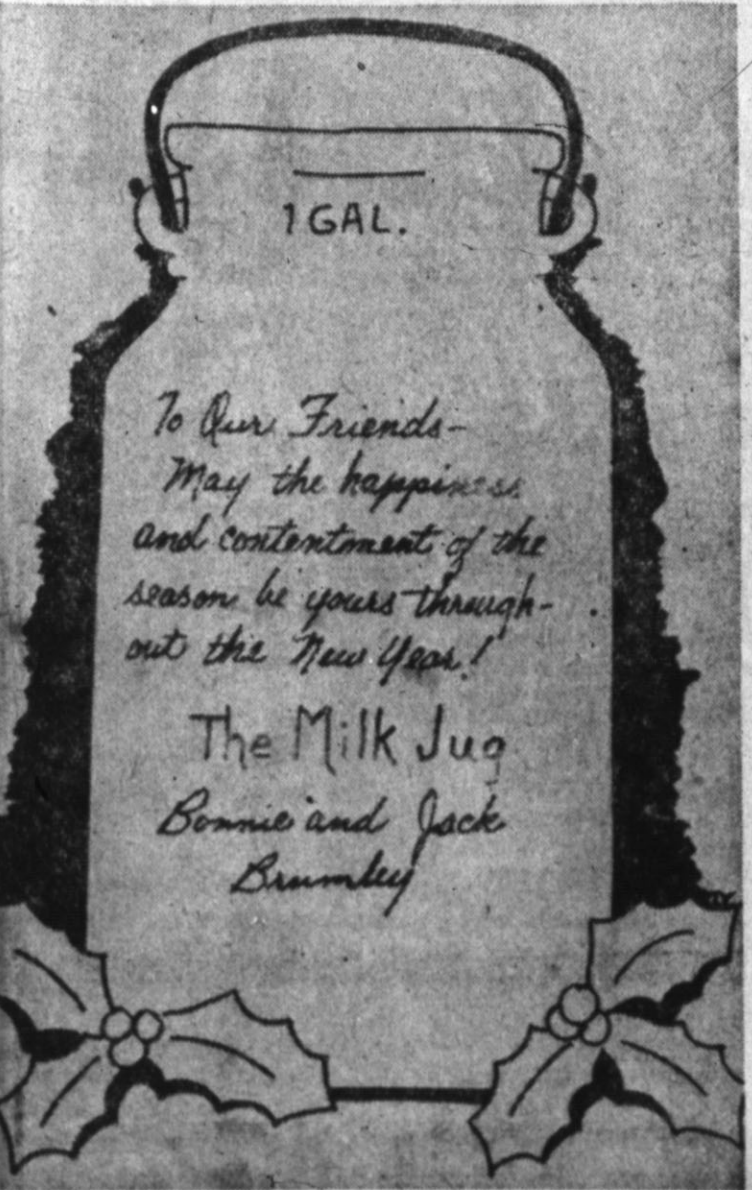 1 GAL.
To Our Friends-
May the happiness
and contentment of the
season be yours through-
out the New Year!
The Milk Jug
Bonnie and Jack
Brumley